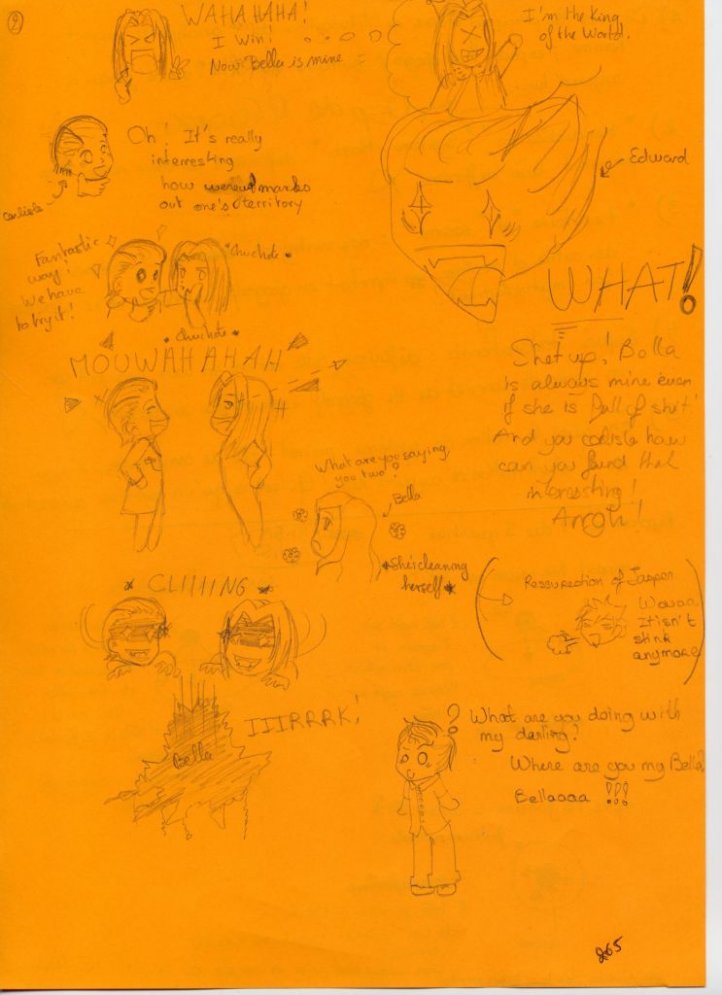 2
WAHAHAHA!
I Win!
Now Bella is mine
I'm the King
of the World.
Edward
Oh! It's really
interresting
how
marks
out one's territory
carlisle
Fantastic
way!
We have
to try it!
* Chuchote *
* Chuchote *
WHAT!
MOUWAHAHAH
Shet up! Bella
is always mine even
if she is full of shit!
And you calisle how
can you find that
interessting!
Arrgh!
What are you saying,
you two?
Bella
*she's cleaning
herself*
* CLIIIING *
Ressurection of Jasper
Wouaa
It isn't
stink
anymore
IIIRRRK!
Bella
What are you doing with
my darling?
Where are you my Bella?
Bellaaaa !!!
265